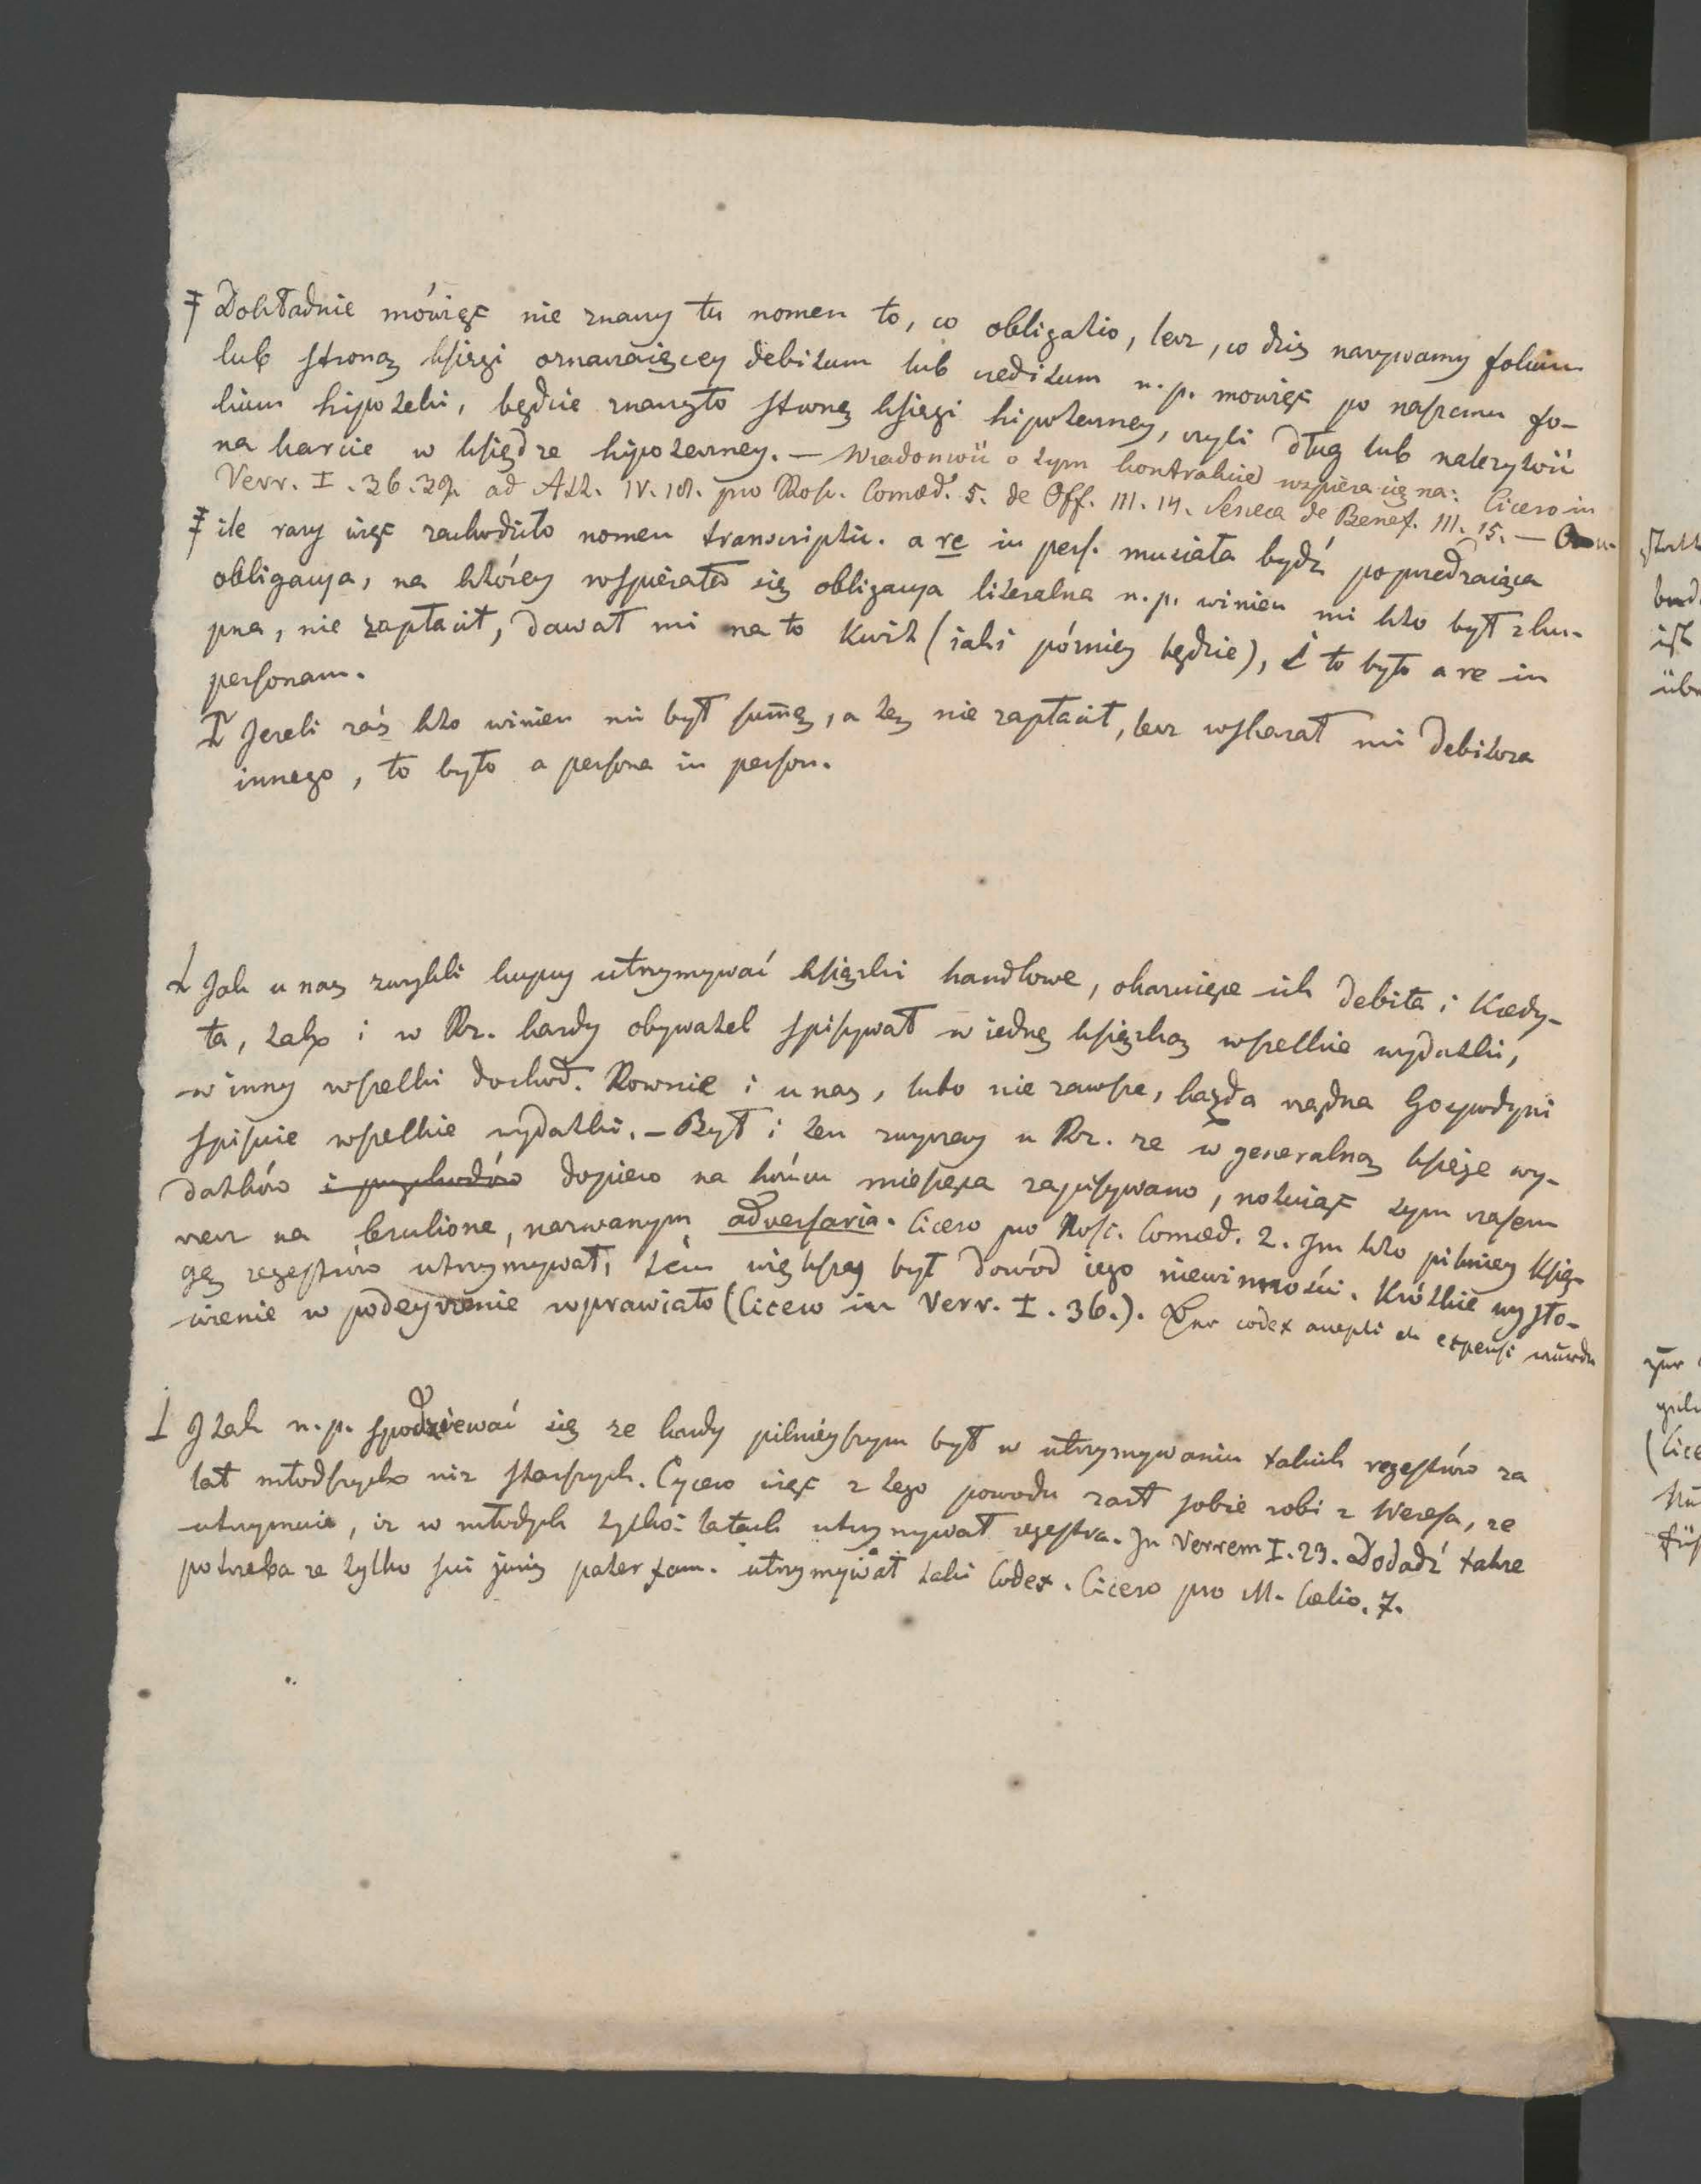 ‡ Dokładnie mówiąc nie znaczy tu nomen to, co obligatio, lecz, co dziś nazywamy folium
lub stroną księgi oznaczaiącey debitum lub creditum n. p. mowiąc po naszemu fo-
lium hipoteki, będzie znaczyło stronę księgi hipoteczney, czyli dług lub należytość
na karcie w księdze hipoteczney. — Wiadomość o tym kontrakcie wspiera się na: Cicero in
Verr. I. 36. 39. ad Att. IV. 18. pro Rosc. Comœd. 5. de Off. III. 14. Seneca de Benef. III. 15. —
‡ ile razy więc zachodziło nomen transcriptic. a re in pers. musiała bydź poprzedzaiąca
obligacya, na którey wspierała się obligacya literalna n. p. winien mi kto był z ku-
pna, nie zapłacił, dawał mi na to Kwit (iaki późniey będzie), i to było a re in
personam.
Jezeli zaś kto winien mi był sum̄ę, a tey nie zapłacił, lecz wskazał mi debitora
innego, to było a persona in person.
Jak u nas zwykli kupcy utrzymywać książki handlowe, okazuiące ich debita i Kredy-
ta, tak i w Rz. kazdy obywatel spisywał w iedną książkę wszelkie wydatki,
w inny wszelki dochod. Rownie i u nas, lubo nie zawsze, każda rządna Gospodyni
spisuie wszelkie wydatki. — Był i ten zwyczay u Rz. ze w generalną księgę wy-
datków i przychodów dopiero na końcu miesiąca zapisywano, notuiąc tym czasem
rzecz na brulionie, nazwanym adversaria. Cicero pro Rosc. Comœd. 2. Im kto pilniey księ-
gę regestrów utrzymywał, tém większy był dowód iego niewinności. Krótkie wysło-
wienie w podeyrzenie wprawiało (Cicero in Verr. I. 36.). codex accepti et expensi
I tak n. p. spodziewać się ze kazdy pilnieyszym był w utrzymywaniu takich regestrów za
lat młodszych niz starszych. Cycero więc z tego powodu zart sobie robi z Weresa, ze
utrzymuie, iz w młodych tylko latach utrzymywał regestra. In Verrem I. 23. Dodadź takze
potrzeba ze tylko sui juris pater fam. utrzymywał taki Codex. Cicero pro M. Cælio. 7.